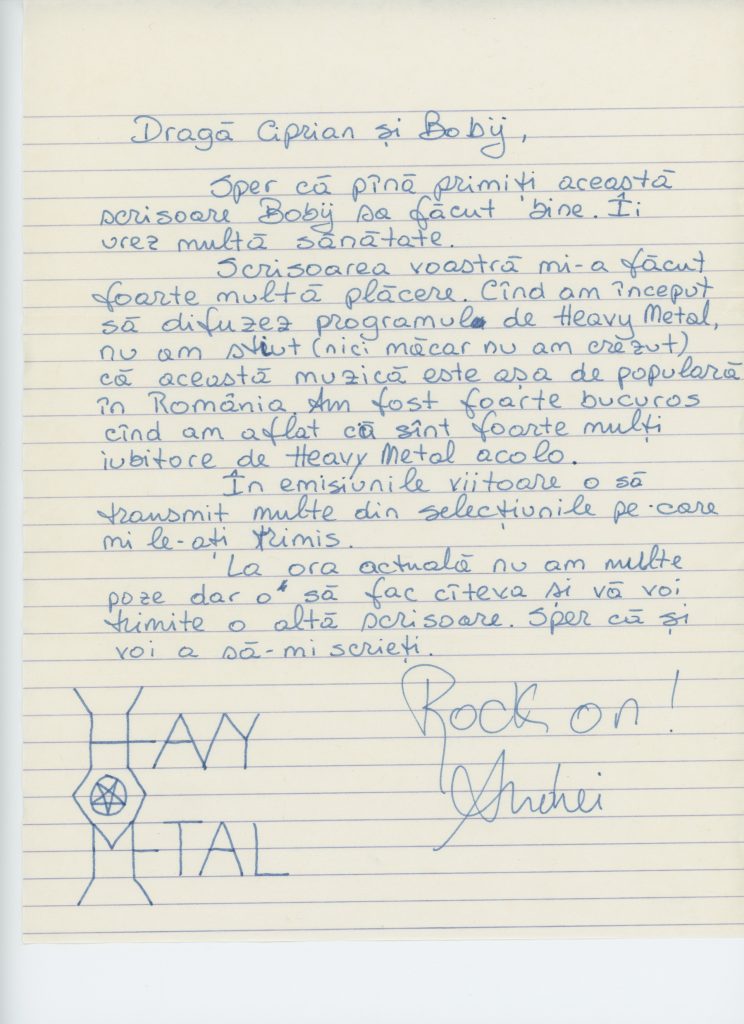 Dragă Ciprian și Bobij,
Sper că pînă primiți această
scrisoare Bobij sa făcut bine. Îi
urez multă sănătate.
Scrisoarea voastră mi-a făcut
foarte multă plăcere. Cînd am început
să difuzez programul de Heavy Metal,
nu am știut (nici măcar nu am crezut)
că această muzică este așa de populară
în România. Am fost foarte bucuros
cînd am aflat că sînt foarte mulți
iubitore de Heavy Metal acolo.
În emisiunile viitoare o să
transmit multe din selecțiunile pe-care
mi le-ați trimis.
La ora actuală nu am multe
poze dar o să fac cîteva și vă voi
trimite o altă scrisoare. Sper că și
voi a să-mi scrieți.
Rock on!
Andrei
HAVY
MTAL